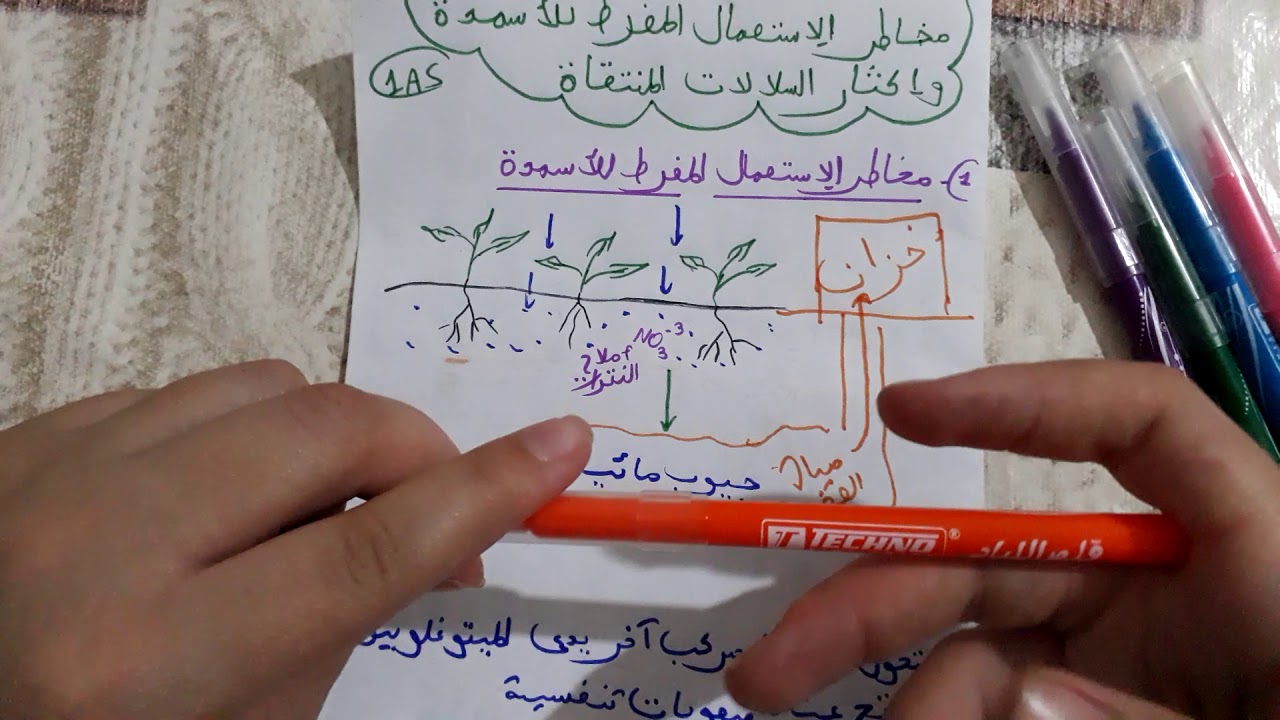 مخاطر الإستعمال المفرط للأسمدة
وإكثار السلالات المنتقاة
1AS
1)- مخاطر الإستعمال المفرط للأسمدة
خزان
NO₃⁻³
أملاح
النترات
جيوب مائية
مياه
TECHNO®
آخر يدعى الميتوغلوبين
صعوبات تنفسية